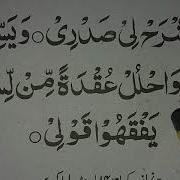 شْرَحْ لِیْ صَدْرِیْ ○ وَیَسِّ
وَاحْلُلْ عُقْدَةً مِّنْ لِّسَ
یَفْقَهُوْا قَوْلِیْ ○